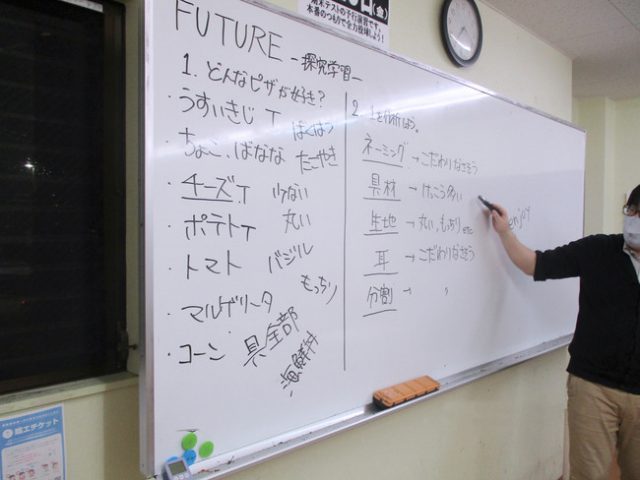 期末テストの予行演習です。
本番のつもりで全力投球しよう!
FUTURE -探究学習-
1. どんなピザが好き?
・うすいきじ T ぼくはつ
・ちょこ、ばなな たこやき
・チーズT 少ない
・ポテトT 丸い
・トマト バジル
・マルゲリータ もっちり
・コーン 具全部
海鮮丼
2. 1を分析しよう。
ネーミング→こだわりなさそう
具材→けっこう多い
生地→丸い、もっちり etc enjoy
耳→こだわりなさそう
分割→ 〃